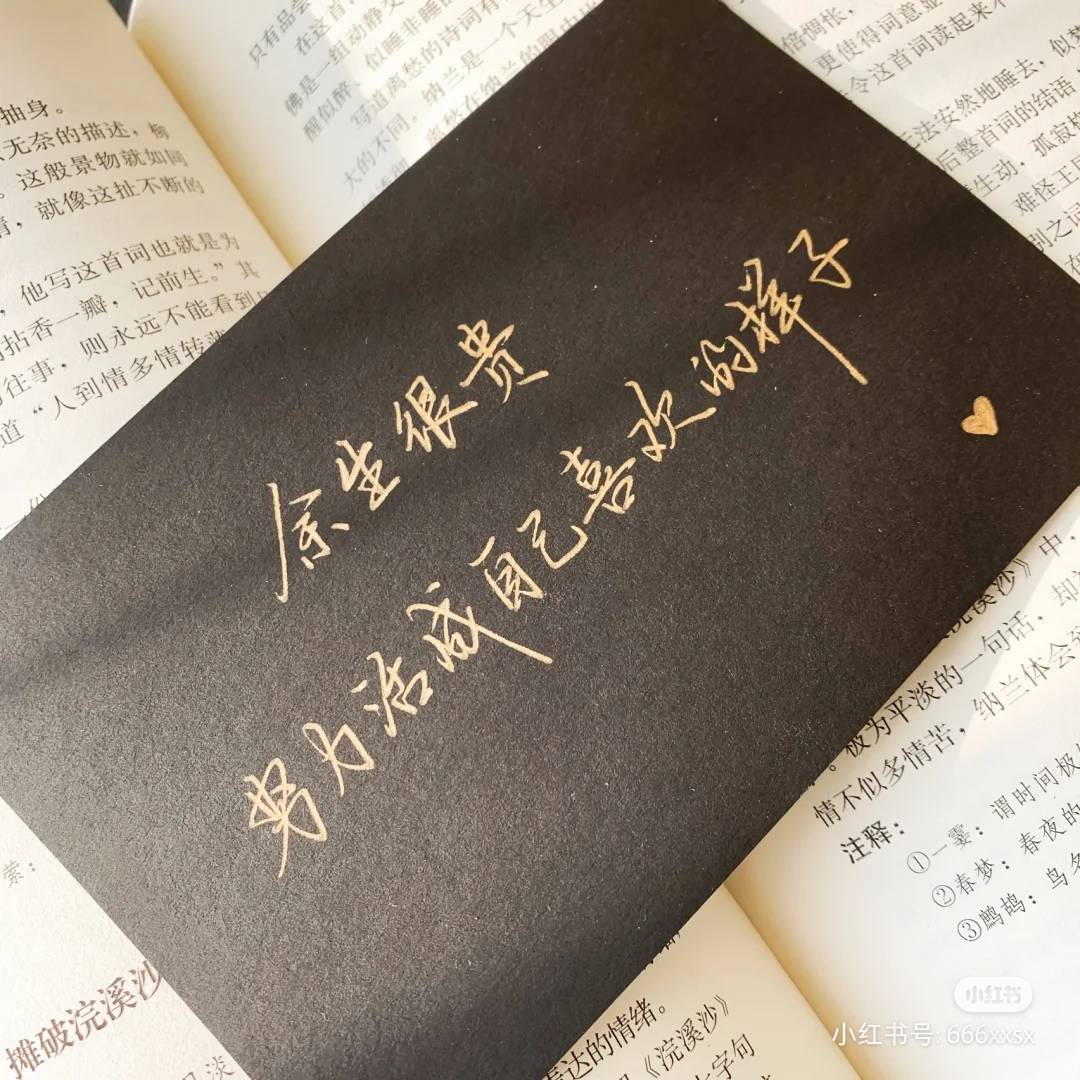 抽身。
无奈的描述，柳
这般景物就如同
，就像这扯不断的
他写这首词也就是为
拈香一瓣，记前生。”其
往事，则永远不能看到
道“人到情多情转薄
摊破浣溪沙
只有品
在这首词
佛是一组动静交
似睡非睡的
醒似醉
写道离愁的诗词有
大的不同。纳兰是一个天生
倍惆怅，
更使得词意显
令这首词读起来不
法安然地睡去，似梦
后整首词的结语，
生动，孤寂
难怪王国
别之词
余生很贵
努力活成自己喜欢的样子
浣溪沙》中，
极为平淡的一句话，却
情不似多情苦，纳兰体会
注释：
①一霎：谓时间极
②春梦：春夜的
③鹧鸪：鸟名
达的情绪。
《浣溪沙》
字句
小红书
小红书号: 666xxsx